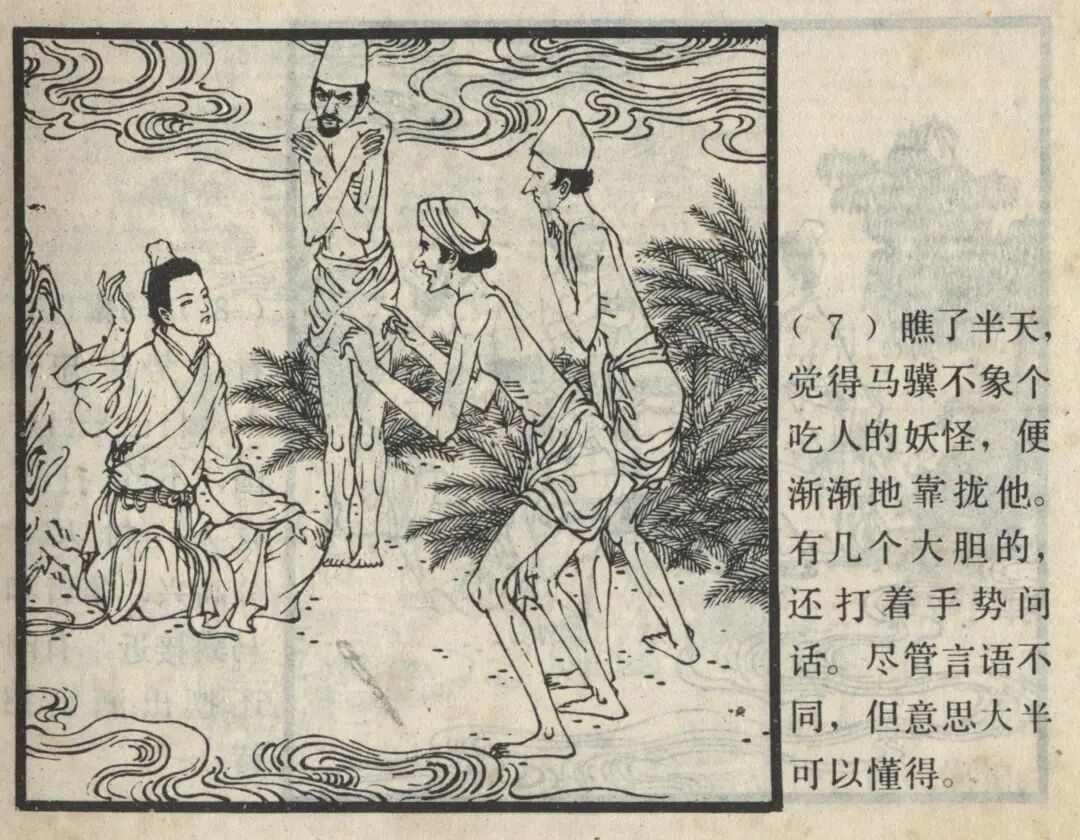 （7）瞧了半天，
觉得马骥不象个
吃人的妖怪，便
渐渐地靠拢他。
有几个大胆的，
还打着手势问
话。尽管言语不
同，但意思大半
可以懂得。